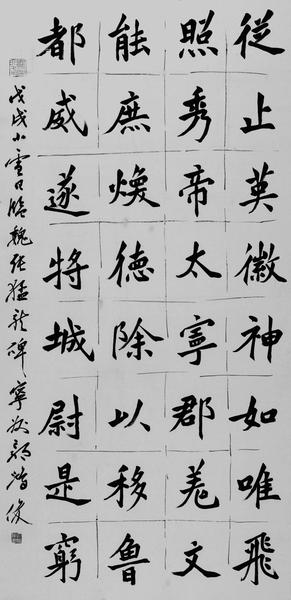 從止英徽神如唯飛
照秀帝太寧郡羗文
能庶煥德除以移魯
都威遂将城尉是窮
戊戌小雪日臨魏張猛龍碑寧波郭皆俊